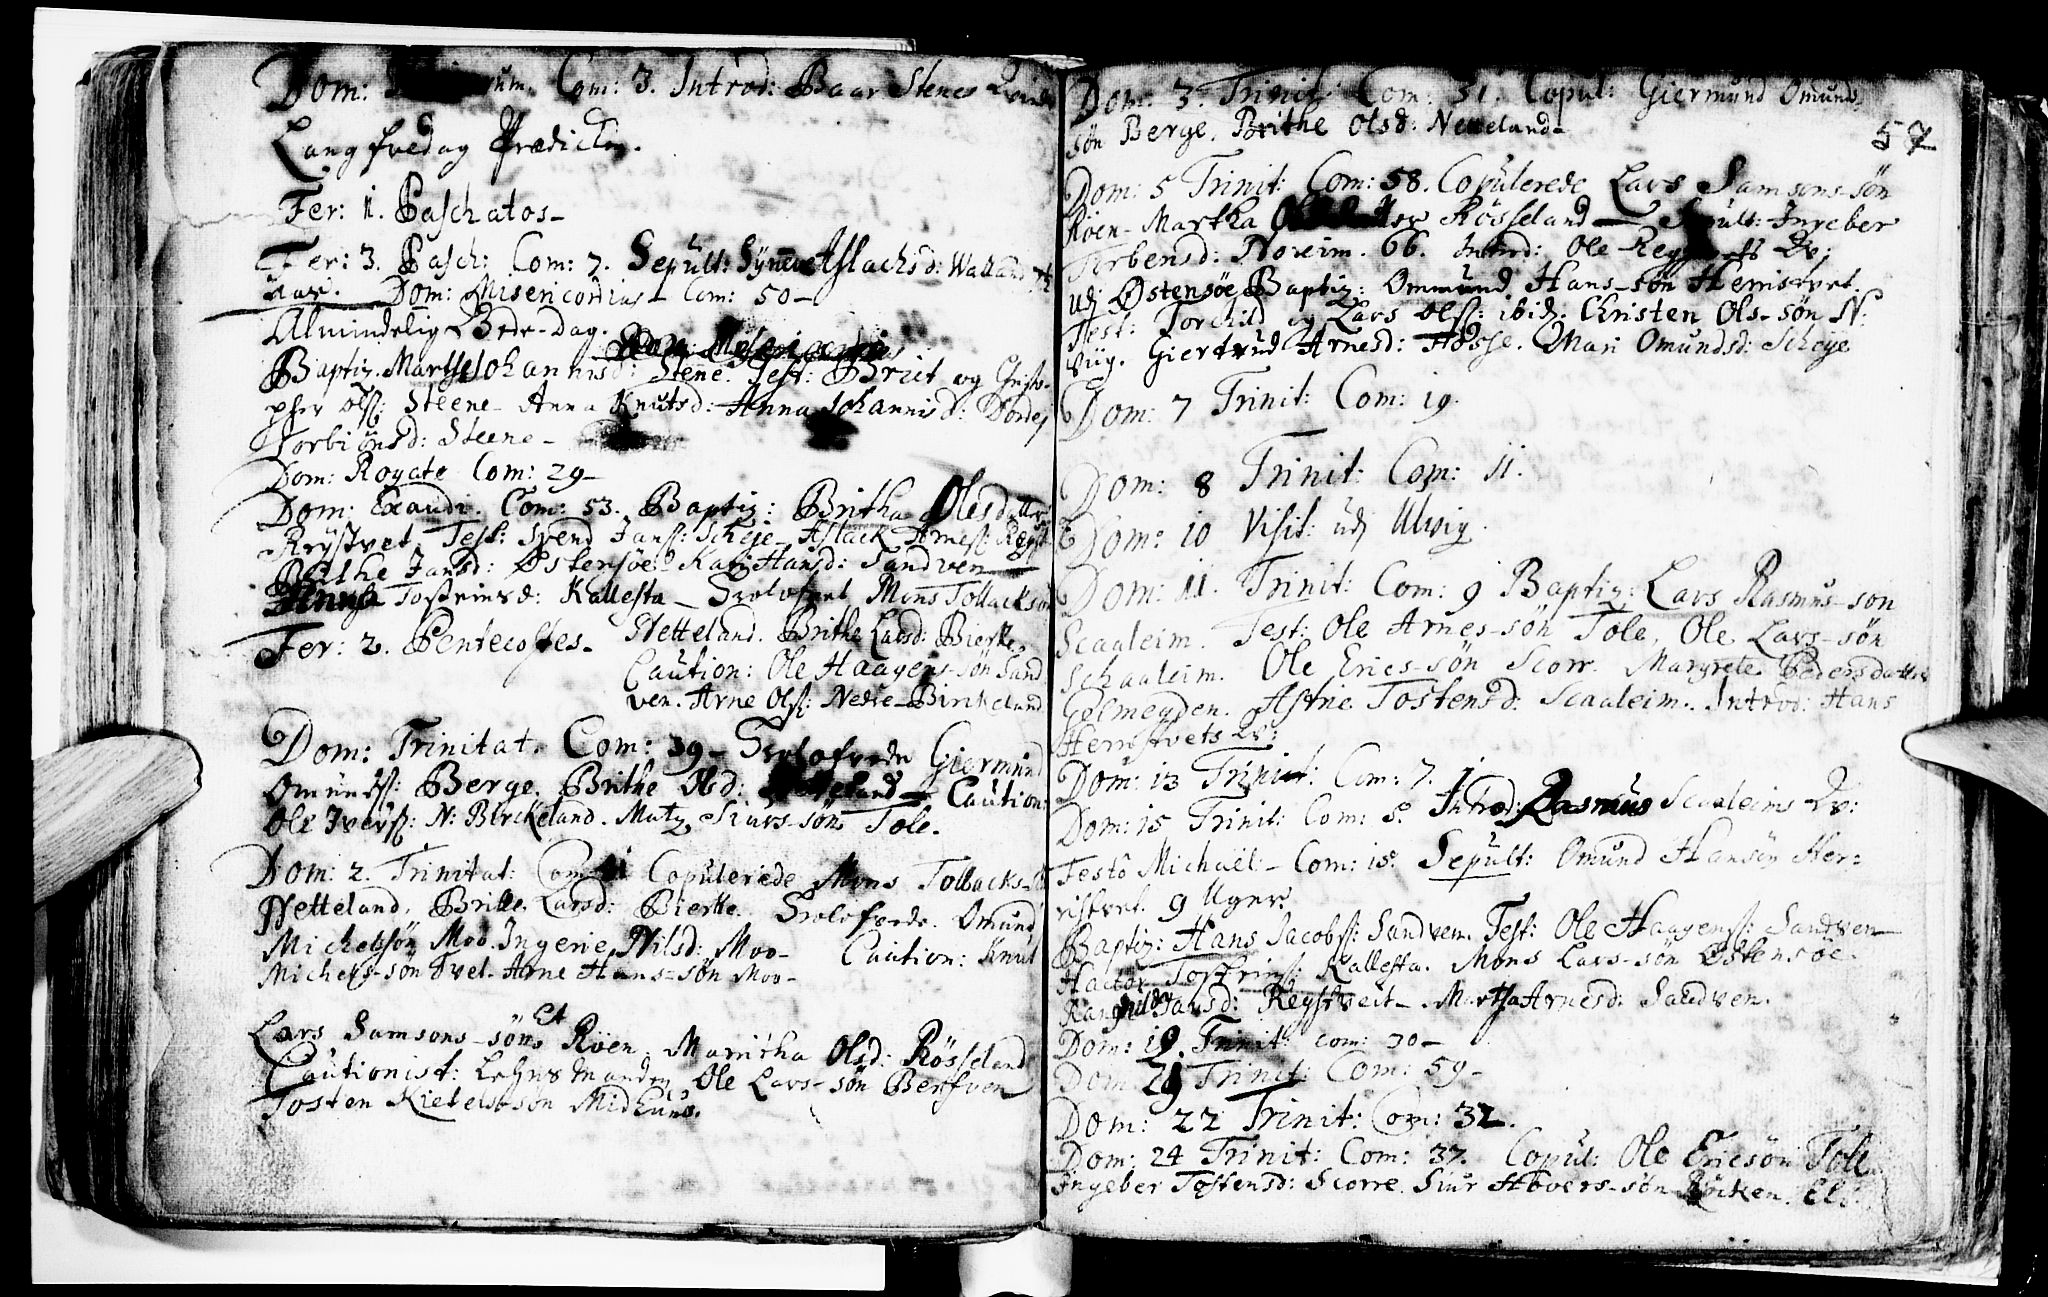 Dom: Com: 3. Introd: Baar Stenes
Langfredag Prædicken.
Fer: 11. Paschatos-
Fer: 3. Pasch: Com: 7. Sepult: Synneve Aslachsd: Walland
Dom: Misericordias- Com: 50-
Almindelig Bede-dag.
Baptiz. Marthe Johannisd: Stene. Test: Briet og Christo-
pher Olss: Steene- Anna Knutsd: Anna Johannisd: Dorde
Torbiönsd: Steene-
Dom: Rogate Com: 29-
Dom: Exaudi. Com: 53. Baptiz: Britha Olesd:
Röystvet Test: Svend Janss: Scheje- Aslack Arness:
Brithe Jansd: Östensöe- Kari Hansd: Sandven
Tosteinsd: Kallesta- Trolofvet Mons Tollackson
Fer: 2. Pentecostes- Netteland. Brithe Larsd: Bierke.
Caution: Ole Haagens-son Sand
ven. Arne Olss: Nedre-Birkeland
Dom: Trinitat. Com: 39- Trolofvede Giermund
Omundss: Berge. Brithe Olsd: Caution:
Ole Iverss: N: Birckeland. Matz Siurs-sön Tole.
Dom: 2. Trinitat: Com: Copulerede Mons Tollacks-
Netteland. Brithe Larsd: Bierke. Trolofvede. Omund
Michelsön Moo. Ingerie Nilsd: Moo- Caution: Knut
Michels-sön Tvet- Arne Hans-sön Moo-
Lars Samsons-söns et Röen. Maritha Olsd: Rösseland
Cautionist: Lehnsmanden Ole Lars-sön Berfven
Tosten Kietels-sön Midhuus.
Dom: 3. Trinit: Com: 31. Copul: Giermund Omund-
sön Berge. Brithe Olsd: Netteland-
57
Dom: 5 Trinit: Com: 58. Copulerede Lars Samsons-sön
Röen- Martha Rösseland- Sepult: Ingeber
Torbensd: Noreim. 66. Introd: Ole
udj Östensöe Baptiz: Ommund Hans-sön Herristvet.
Test: Torchild og Lars Olss: ibid: Christen Ols-sön N:
Viig. Giertrud Arnesd: Mari Omundsd: Scheje
Dom: 7 Trinit: Com: 19.
Dom: 8 Trinit: Com: 11.
Dom: 10 Visit: udj Ulvig.
Dom: 11. Trinit: Com: 9 Baptiz: Lars Rasmus-son
Scaaleim. Test: Ole Arnes-sön Tole, Ole Lars-sön
Schaaleim. Ole Erics-sön Scorr. Margrete Pedersdatter
Astrie Tostensd: Scaaleim. Introd: Hans
Herrestvets
Dom: 13 Trinit: Com: 7.
Dom: 15 Trinit: Com: 5. Introd: Rasmus Scaaleims
Festo Michaël- Com: 15. Sepult: Omund Hansön Her=
ristvet. 9 Uger.
Baptiz: Hans Jacobss: Sandven. Test: Ole Haagenss: Sandven-
Hactor Tosteinss: Kallesta. Mons Lars-sön Östensöe.
Jansd: Röystveit- Martha Arnesd: Sandven.
Dom: 19. Trinit: com: 30-
Dom: Trinit: Com: 59-
Dom: 22 Trinit: Com: 32.
Dom: 24 Trinit: Com: 37. Copul: Ole Ericsön Tole
Ingeber Tostensd: Scorre. Siur Hovers-sön